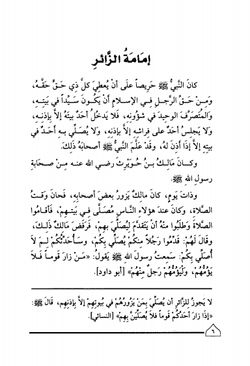 إمَامَةُ الزَّائرِ
كانَ النَّبيُّ ﷺ حَرِيصاً عَلَى أنْ يُعطِيَ كُلَّ ذي حَقٍّ حَقَّهُ،
وَمِنْ حَقِّ الرَّجلِ فِي الإسلامِ أنْ يَكُونَ سَيِّداً في بَيْتِهِ،
والمُتصَرِّفَ الوَحِيدَ في شؤونِهِ، فَلا يَدخُلُ أحَدٌ بيتَهُ إلاَّ بإذنِهِ،
وَلا يَجلِسُ أحَدٌ عَلى فِراشِهِ إلاَّ بإذنِهِ، وَلا يُصلِّي بِهِ أحَدٌ في
بيتِهِ إلاَّ إذا أذِنَ لَهُ، وقَدْ عَلَّمَ النَّبيُّ ﷺ أصحابَهُ ذَلكَ.
وكَـانَ مَـالِكُ بـنُ حُوَيرِثَ رضي الله عنه مِنْ صَحابَةِ
رسولِ اللهِ ﷺ.
وذاتَ يَومٍ، كَانَ مَالِكٌ يَزورُ بعضَ أصحابِهِ، فَحانَ وَقتُ
الصَّلاةِ، وَكانَ عندَ هؤلاءِ النَّاسِ مُصَلَّى في بَيتِهِمْ، فأقامُوا
الصَّلاةَ وطَلبُوا مِنْهُ أنْ يتَقَدَّمَ لِيُصلِّيَ بِهِمْ، فَرَفَضَ مَالكٌ ذَلِكَ،
وقالَ لَهُمْ: قَدِّمُوا رَجُلاً مِنْكُمْ يُصَلِّي بِكُمْ، وسأُحَدِّثُكُمْ لِمَ لاَ
أُصلِّي بِكُمْ. سَمِعتُ رسولَ اللهِ ﷺ يَقولُ: «مَنْ زارَ قَوماً فَلاَ
يَؤُمَّهُمْ، وَليَؤُمَّهُمْ رَجلٌ مِنْهُمْ» [أبو داود].
لا يَجوزُ للزَّائرِ أن يُصلِّيَ بِمَنْ يَزورُهُمْ في بيوتِهِمْ إلاَّ بِإذنِهِمْ، قالَ ﷺ:
«إذَا زارَ أحَدُكُمْ قَوماً فَلاَ يُصَلِّيَنَّ بِهِمْ» [النسائي].
٦